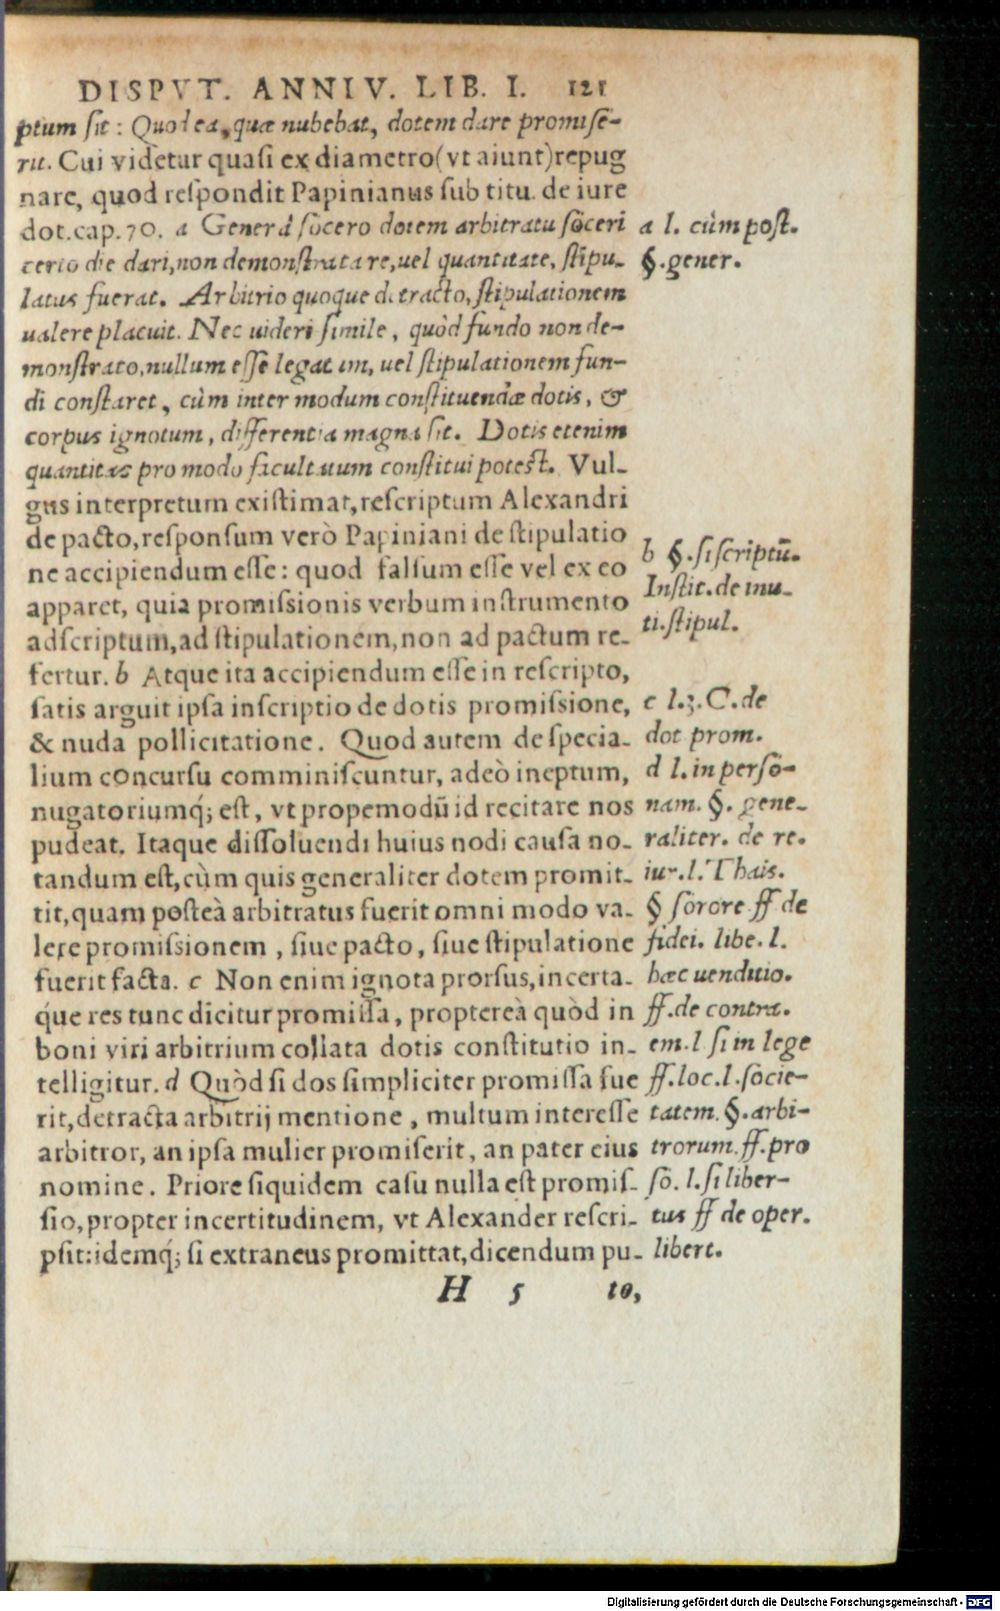 DISPVT. ANNIV. LIB. I. 121
ptum sit: Quod ea, quæ nubebat, dotem dare promise-
rit. Cui videtur quasi ex diametro (vt aiunt) repug
nare, quod respondit Papinianus sub titu. de iure
dot. cap. 70. a Gener à socero dotem arbitratu soceri
certo die dari, non demonstrata re, uel quantitate, stipu-
latus fuerat. Arbitrio quoque detracto, stipulationem
ualere placuit. Nec uideri simile, quòd fundo non de-
monstrato, nullum esse legatum, uel stipulationem fun-
di constaret, cùm inter modum constituendæ dotis, &
corpus ignotum, differentia magna sit. Dotis etenim
quantitas pro modo facultatum constitui potest. Vul-
gus interpretum existimat, rescriptum Alexandri
de pacto, responsum verò Papiniani de stipulatio
ne accipiendum esse: quod falsum esse vel ex eo
apparet, quia promissionis verbum instrumento
adscriptum, ad stipulationem, non ad pactum re-
fertur. b Atque ita accipiendum esse in rescripto,
satis arguit ipsa inscriptio de dotis promissione,
& nuda pollicitatione. Quod autem de specia-
lium concursu comminiscuntur, adeò ineptum,
nugatoriumq́; est, vt propemodū id recitare nos
pudeat. Itaque dissoluendi huius nodi causa no-
tandum est, cùm quis generaliter dotem promit-
tit, quam posteà arbitratus fuerit omni modo va-
lere promissionem, siue pacto, siue stipulatione
fuerit facta. c Non enim ignota prorsus, incerta-
q́ue res tunc dicitur promissa, proptereà quòd in
boni viri arbitrium collata dotis constitutio in-
telligitur. d Quòd si dos simpliciter promissa fue
rit, detracta arbitrij mentione, multum interesse
arbitror, an ipsa mulier promiserit, an pater eius
nomine. Priore siquidem casu nulla est promis-
sio, propter incertitudinem, vt Alexander rescri-
psit: idemq́; si extraneus promittat, dicendum pu-
H 5 to,
a l. cùm post.
§. gener.
b §. si scriptū.
Instit. de inu-
ti. stipul.
c l. 3. C. de
dot prom.
d l. in perso-
nam. §. gene-
raliter. de re.
iur. l. Thais.
§ sorore ff de
fidei. libe. l.
hæc uenditio.
ff. de contra.
em. l si in lege
ff. loc. l. socie-
tatem. §. arbi-
trorum. ff. pro
so. l. si liber-
tus ff de oper.
libert.
Digitalisierung gefördert durch die Deutsche Forschungsgemeinschaft - DFG